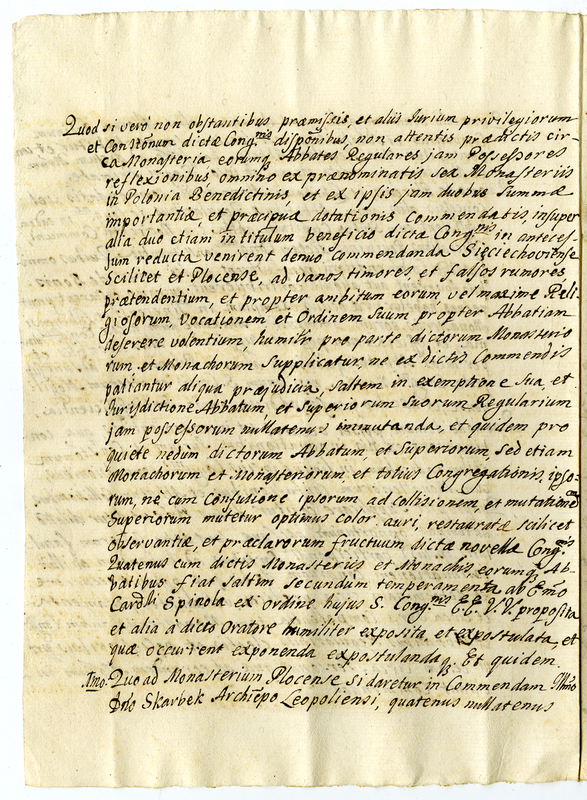 Quod si verò non obstantibus præmissis, et aliis Jurium privilegiorum
et Con Stõnum dictæ Cong.nis dispõnibus, non attentis prædictis cir-
ca Monasteria eorumq. Abbates Regulares jam Possessores
reflexionibus omnino ex prænominatis sex Monasteriis
in Polonia Benedictinis, et ex ipsis jam duobus Summæ
importantiæ, et præcipuæ dotationis Commendatis, insuper
alia duo etiam in titulum beneficio dictæ Cong.nis in anteces-
sum reducta venirent denuo commendanda Sieciechoviense
Scilicet et Plocense, ad vanos timores, et falsos rumores
prætendentium, et propter ambitum eorum, vel maxime Reli-
giosorum, Vocationem et Ordinem Suum propter Abbatiam
deserere volentium, humiltr pro parte dictorum Monasterio
rum, et Monachorum Supplicatur, ne ex dictis Commendis
patiantur aliqua præjudicia, saltem in exemptione Sua, et
Jurisdictione Abbatum, et Superiorum suorum Regularium
jam possessorum nullatenus immutanda, et quidem pro
quiete nedum dictorum Abbatum, et Superiorum, sed etiam
Monachorum et Monasteriorum, et totius Congregationis, ipso-
rum, nè cum Confusione ipsorum ad collisionem, et mutationem
Superiorum mutetur optimus color auri, restauratæ scilicet
observantiæ, et præclarorum fructuum dictæ novellæ Cong.nis
Quatenus cum dictis Monasteriis et Monachis, eorumq. Ab-
batibus fiat saltim secundùm temperamenta ab Emo
Cardli Spinola ex ordine hujus S. Cong.nis EE. VV. proposita
et alia à dicto Oratore humiliter exposita, et expostulata, et
quæ occurrent exponenda expostulandaq. Et quidem
Imo. Quo ad Monasterium Plocense si daretur in Commendam Illmo
Dño Skarbek Archiepo Leopoliensi, quatenus nullatenus